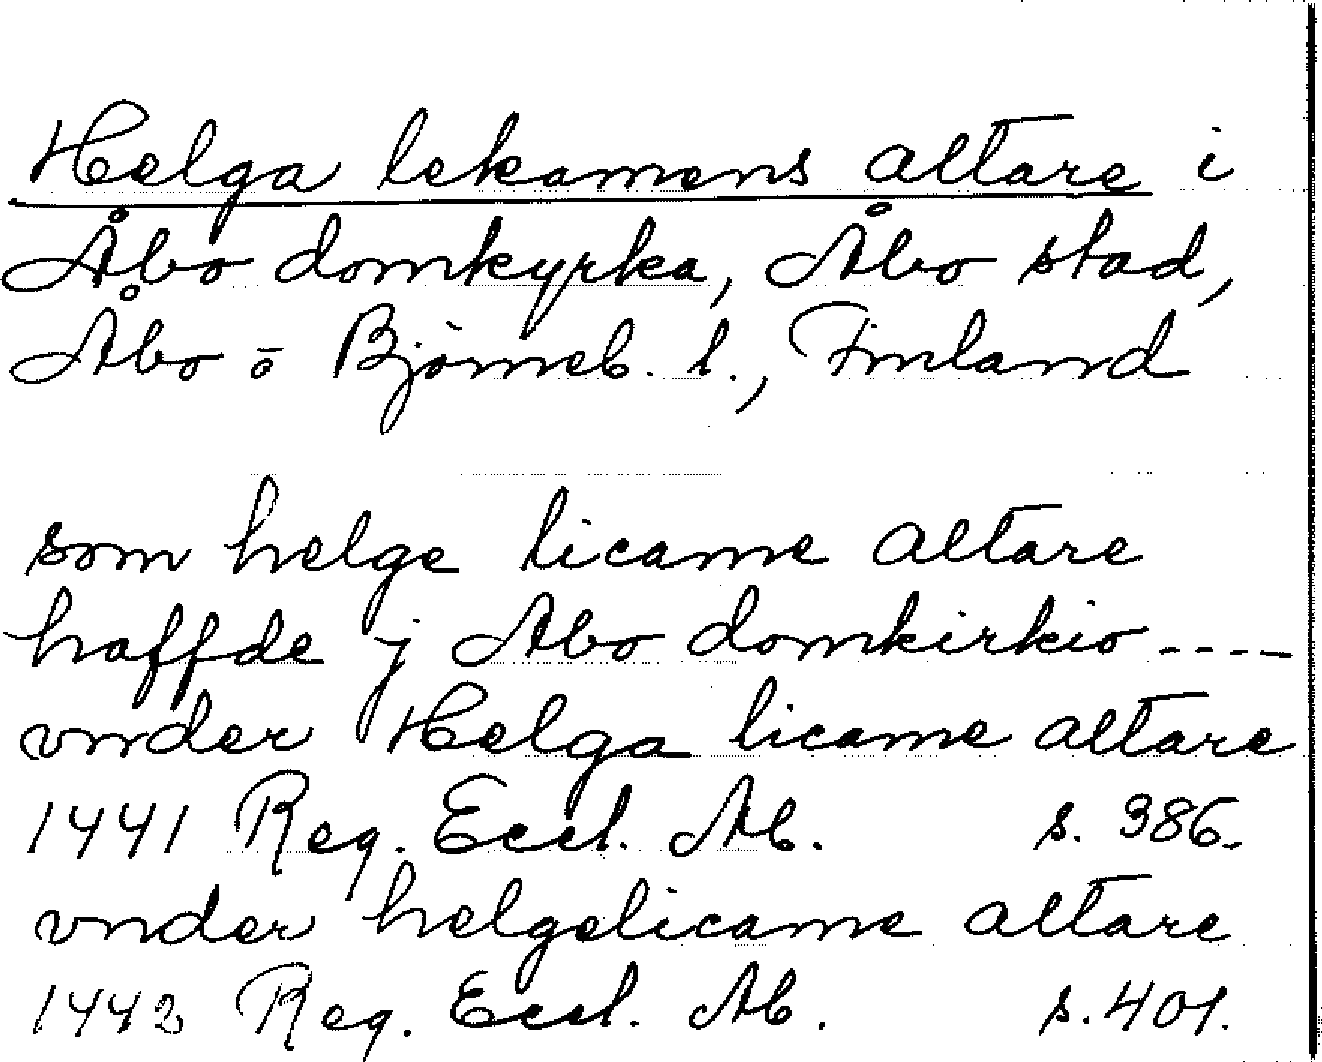 Helga lekamens altare i
Åbo domkyrka, Åbo stad,
Åbo o Björneb. l., Finland
som helge licame altare
haffde j Abo domkirkio ----
vnder Helga licame altare
1441 Reg. Eccl. Ab. s. 386.
vnder helgelicame altare
1442 Reg. Eccl. Ab. s. 401.